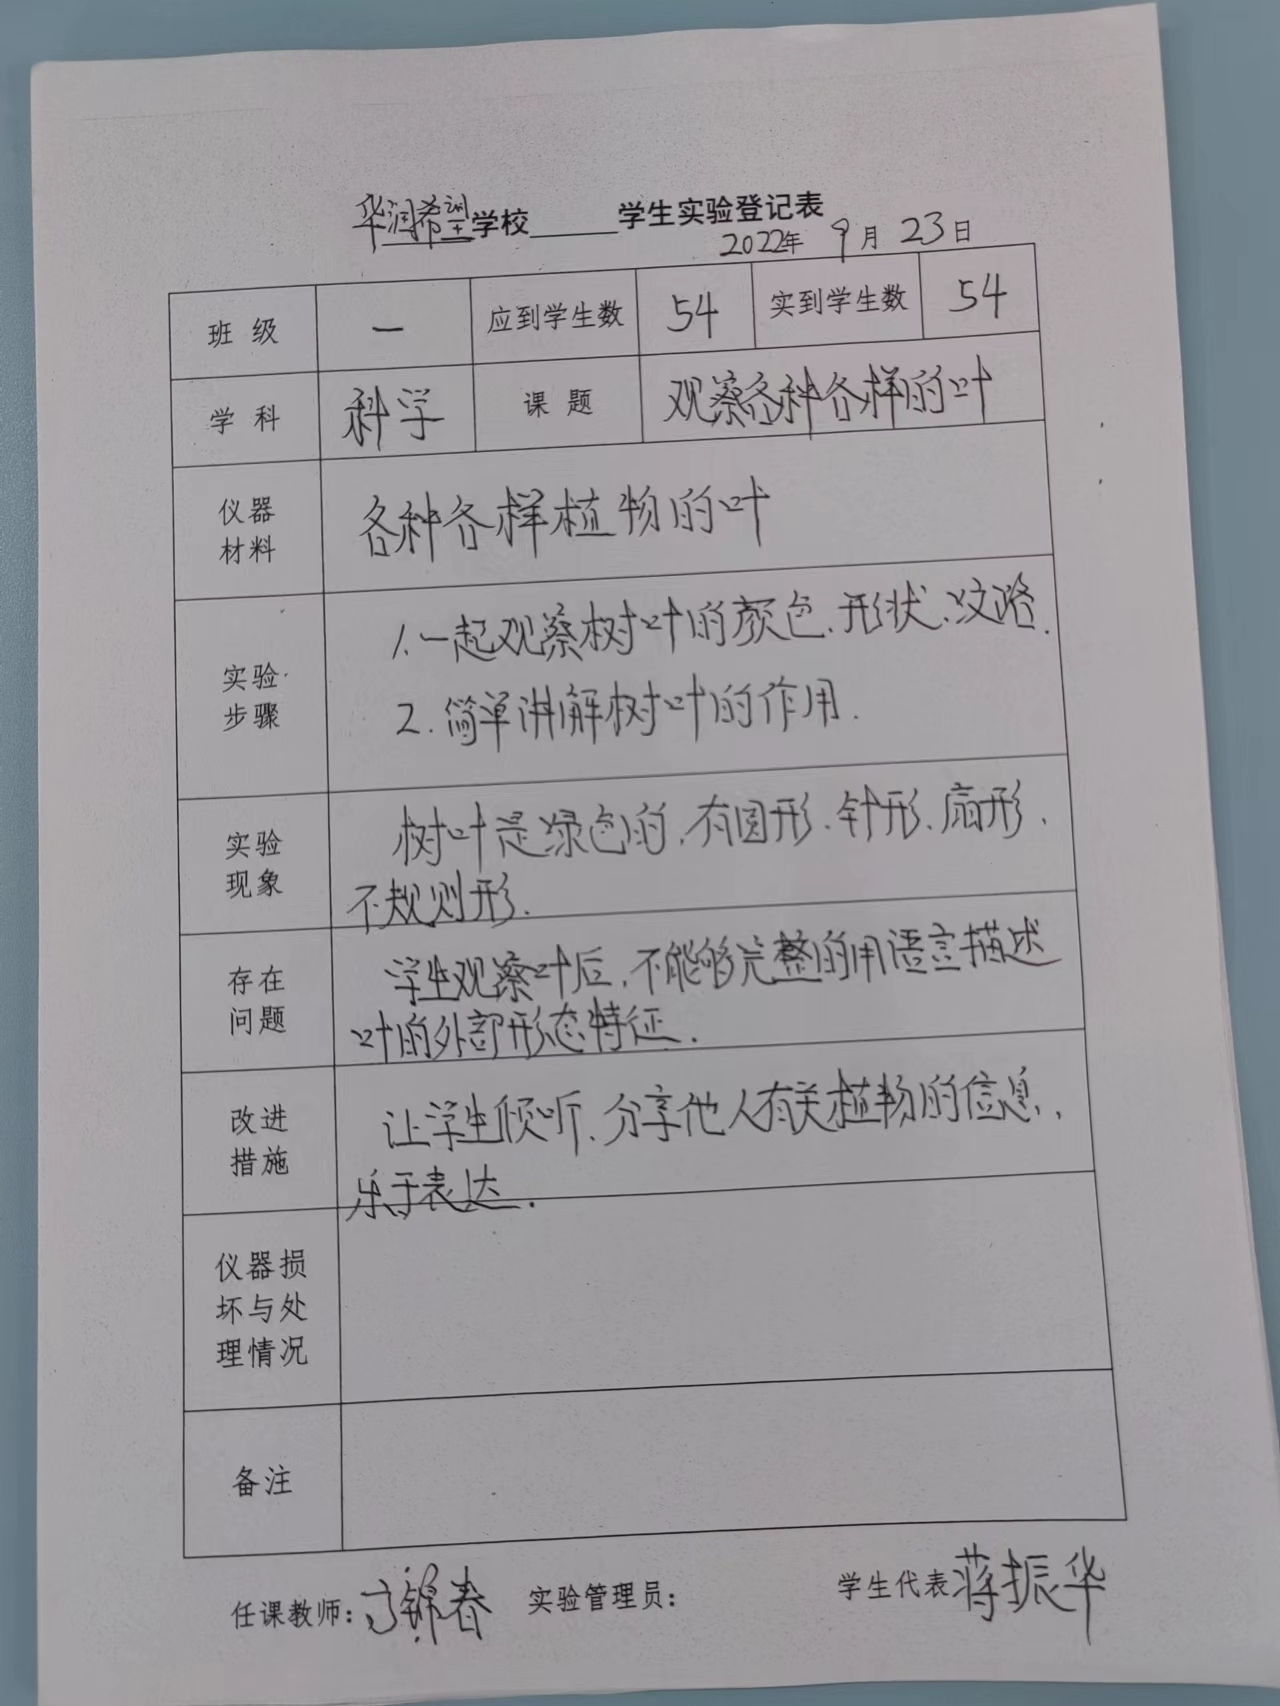 华润希望学校______学生实验登记表
2022年 9月 23日
班 级 一 应到学生数 54 实到学生数 54
学 科 科学 课 题 观察各种各样的叶
仪器
材料
各种各样植物的叶
实验
步骤
1.一起观察树叶的颜色、形状、纹路.
2.简单讲解树叶的作用.
实验
现象
树叶是绿色的,有圆形、针形、扇形、
不规则形.
存在
问题
学生观察叶后,不能够完整的用语言描述
叶的外部形态特征.
改进
措施
让学生倾听、分享他人有关植物的信息,
乐于表达.
仪器损
坏与处
理情况
备注
任课教师: 锦春 实验管理员: 学生代表 蒋振华